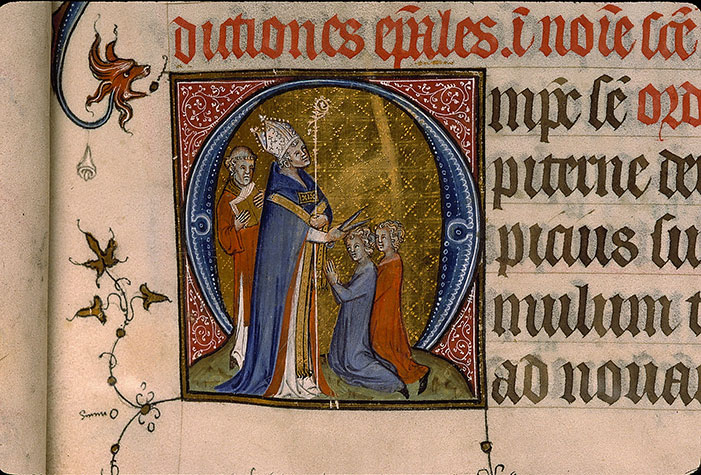 dictiones ep̃ales. ĩ noĩe scẽ
Omp̃c sẽ ord
piterne de
piaus su
muilum t
ad noua